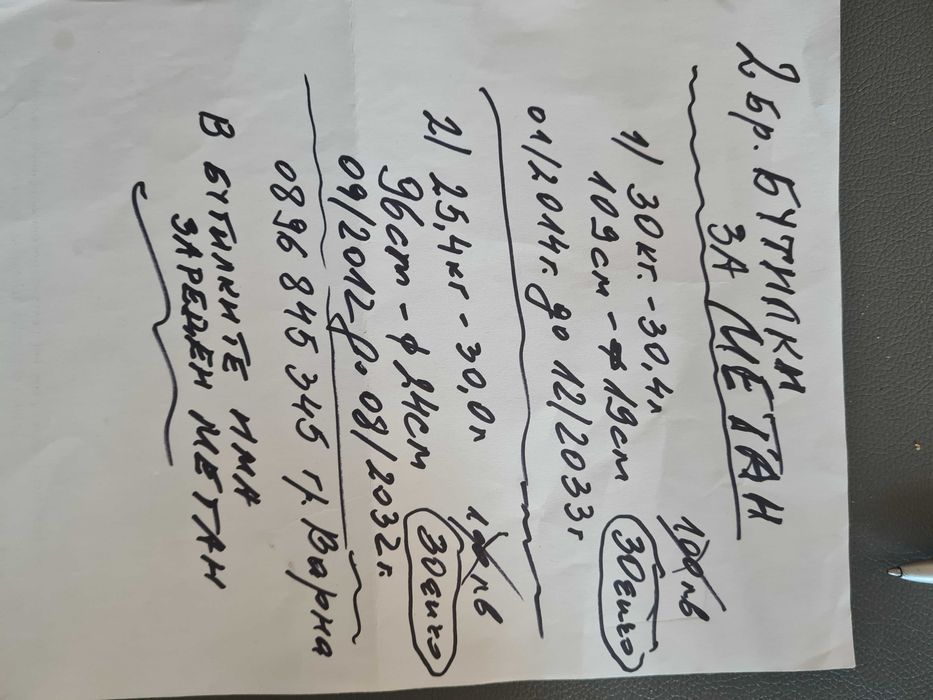 2 бр. БУТИЛКИ
ЗА МЕТАН
1/ 30кг. - 30,4л
109см - ф 19cm
01/2014г. до 12/2033г
100лв
30
2/ 25,4кг - 30,0л
96cm - ф 24cm
09/2012г. 08/2032г.
100лв
30
0896 845 345 гр. Варна
В БУТИЛКИТЕ ИМА
ЗАРЕДЕН МЕТАН